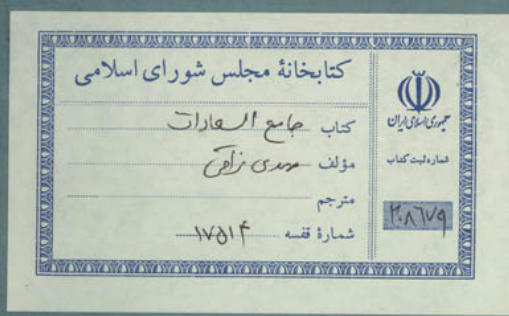 کتابخانهٔ مجلس شورای اسلامی
کتاب جامع السعادات
مؤلف مهدی نراقی
مترجم
شمارهٔ قفسه ۱۷۵۱۴
جمهوری اسلامی ایران
شماره ثبت کتاب
۲۰۸۶۷۹